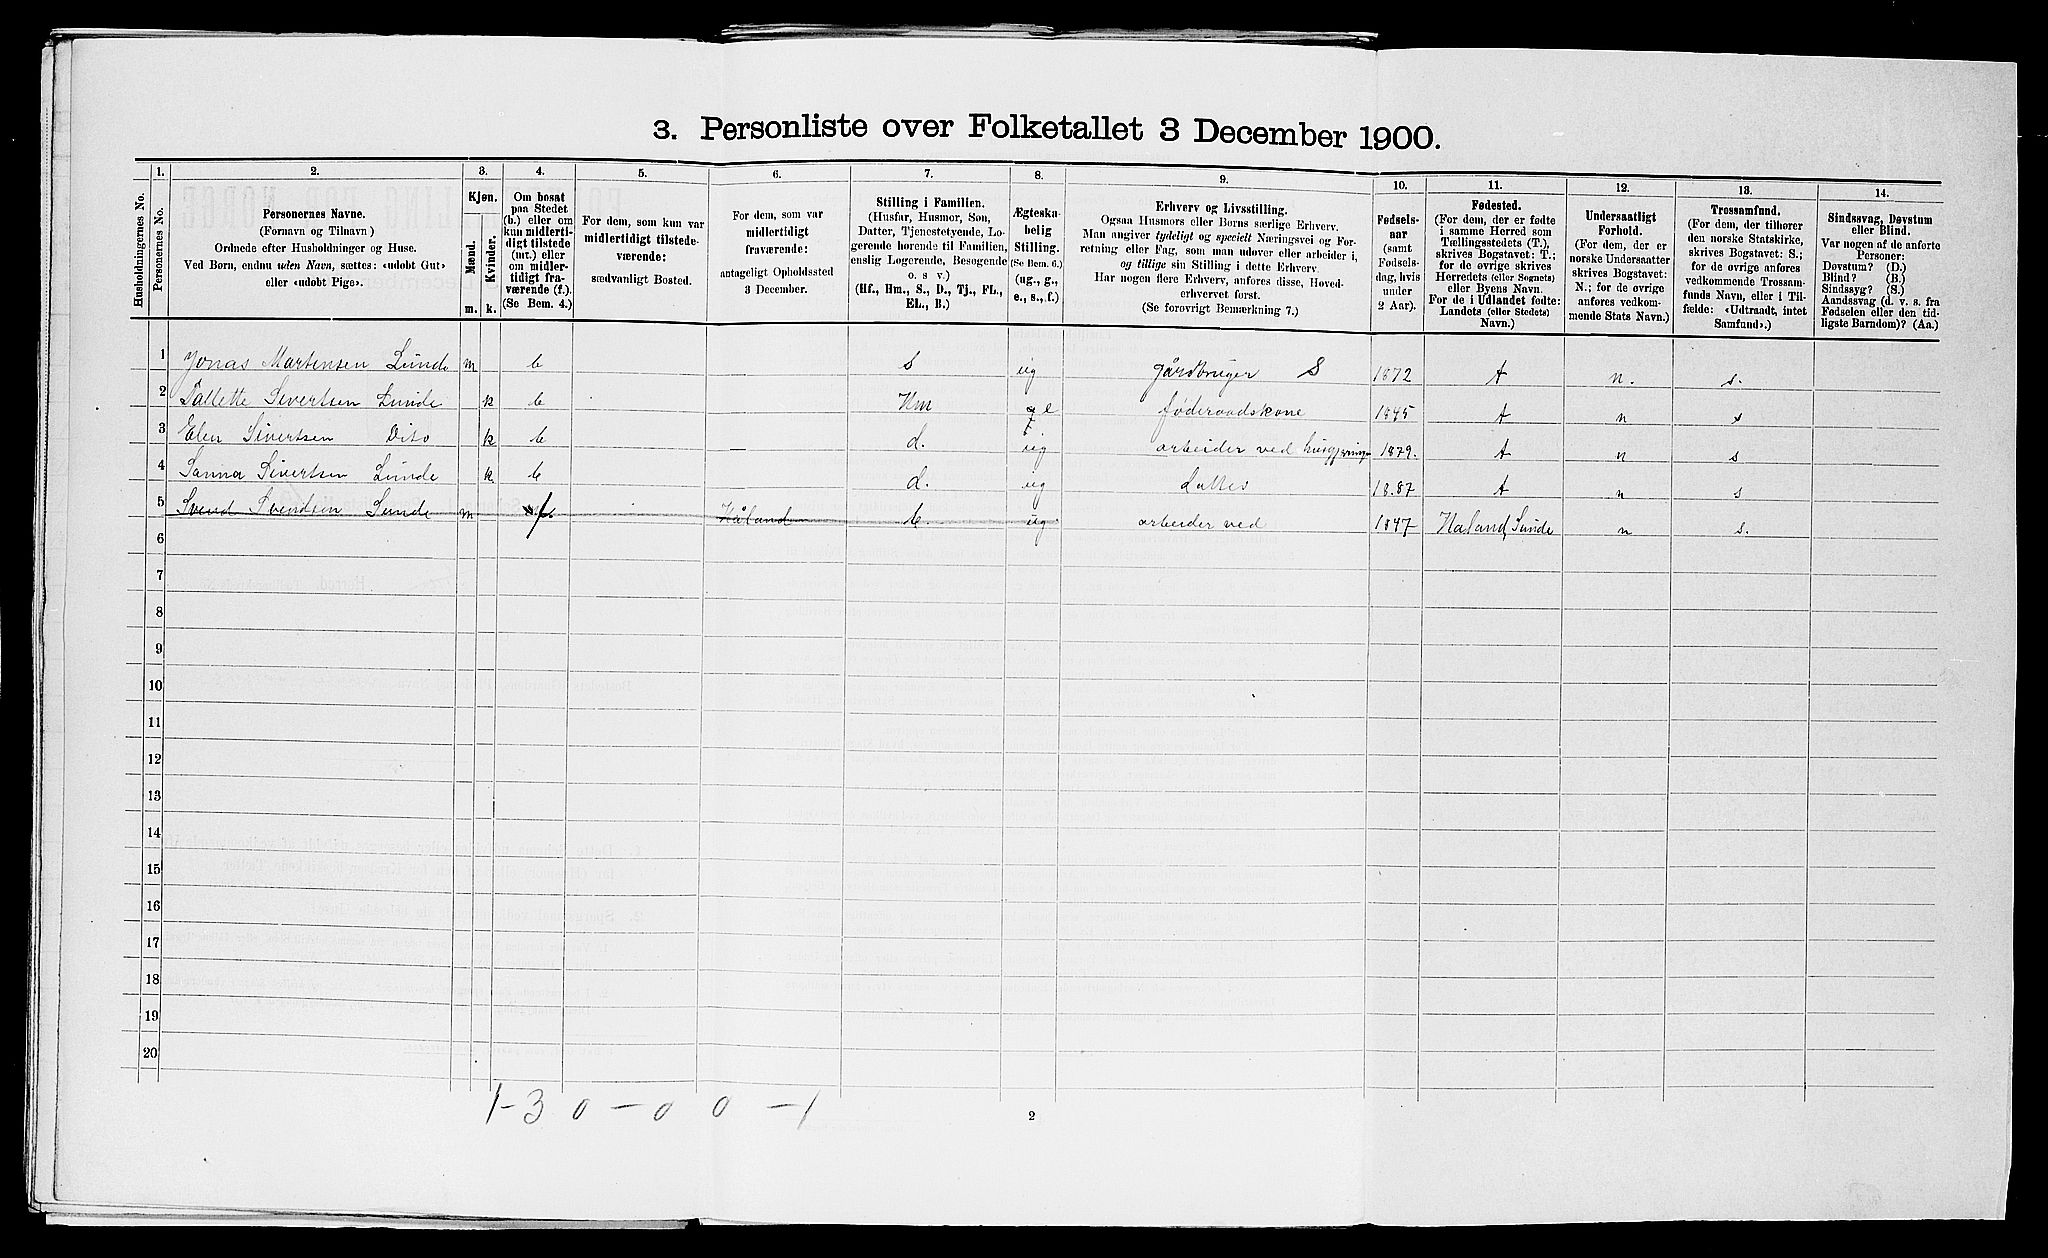 3. Personliste over Folketallet 3 December 1900.
Husholdningernes No.
1.
Personernes No.
2.
Personernes Navne.
(Fornavn og Tilnavn)
Ordnede efter Husholdninger og Huse.
Ved Børn, endnu uden Navn, sættes: «udøbt Gut»
eller «udøbt Pige».
3.
Kjøn.
Mænd.
Kvinder.
m. k.
4.
Om bosat
paa Stedet
(b.) eller om
kun midlerti-
digt tilstede
(mt.) eller
om midler-
tidigt fra-
værende (f.).
(Se Bem. 4.)
5.
For dem, som kun var
midlertidigt tilstede-
værende:
sædvanligt Bosted.
6.
For dem, som var
midlertidigt
fraværende:
antageligt Opholdssted
3 December.
7.
Stilling i Familien.
(Husfar, Husmor, Søn,
Datter, Tjenestetyende, Lo-
gerende hørende til Familien,
enslig Logerende, Besøgende
o. s v.)
(Hf., Hm., S., D., Tj., FL.,
EL., B.)
8.
Ægteska-
belig
Stilling.
(Se Bem. 6.)
(ug., g.,
e., s., f.)
9.
Erhverv og Livsstilling.
Ogsaa Husmors eller Børns særlige Erhverv.
Man angiver tydeligt og specielt Næringsvei og For-
retning eller Fag, som man udøver eller arbeider i,
og tillige sin Stilling i dette Erhverv.
Har nogen flere Erhverv, anføres disse, Hoved-
erhvervet først.
(Se forøvrigt Bemærkning 7.)
10.
Fødsels-
aar
(samt
Fødsels-
dag, hvis
under
2 Aar).
11.
Fødested.
(For dem, der er fødte
i samme Herred som
Tællingsstedets (T.),
skrives Bogstavet: T.;
for de øvrige skrives
Herredets (eller Sognets)
eller Byens Navn.
For de i Udlandet fødte:
Landets (eller Stedets)
Navn.)
12.
Undersaatligt
Forhold.
(For de, der er
norske Undersaatter
skrives Bogstavet:
N.; for de øvrige
anføres vedkom-
mende Stats Navn.)
13.
Trossamfund.
(For dem, der tilhører
den norske Statskirke,
skrives Bogstavet: S.;
for de øvrige anføres
vedkommende Trossam-
funds Navn, eller i Til-
fælde: «Udtraadt, intet
Samfund».)
14.
Sindssvag, Døvstum
eller Blind.
Var nogen af de anførte
Personer:
Døvstum? (D.)
Blind? (B.)
Sindssyg? (S.)
Aandssvag (d. v. s. fra
Fødselen eller den tid-
ligste Barndom)? (Aa.)
1 Jonas Martensen Lunde m b s ug gårdbruger S 1872 t n. s.
2 Tallette Sivertsen Lunde k b — Hm e føderaadskone 1845 t n s
3 Elen Sivertsen Dito k b — d. ug arbeider ved husgjerning 1879. t n s
4 Sanna Sivertsen Lunde k b d. ug Dattes 1887 t n s
5 Svend Svendsen Lunde m f. Håland b. ug arbeider ved 1847 Haland, Sunde n s.
6
7
8
9
10
11
12
13
14
15
16
17
18
19
20
1-3 0-0 0-1
2